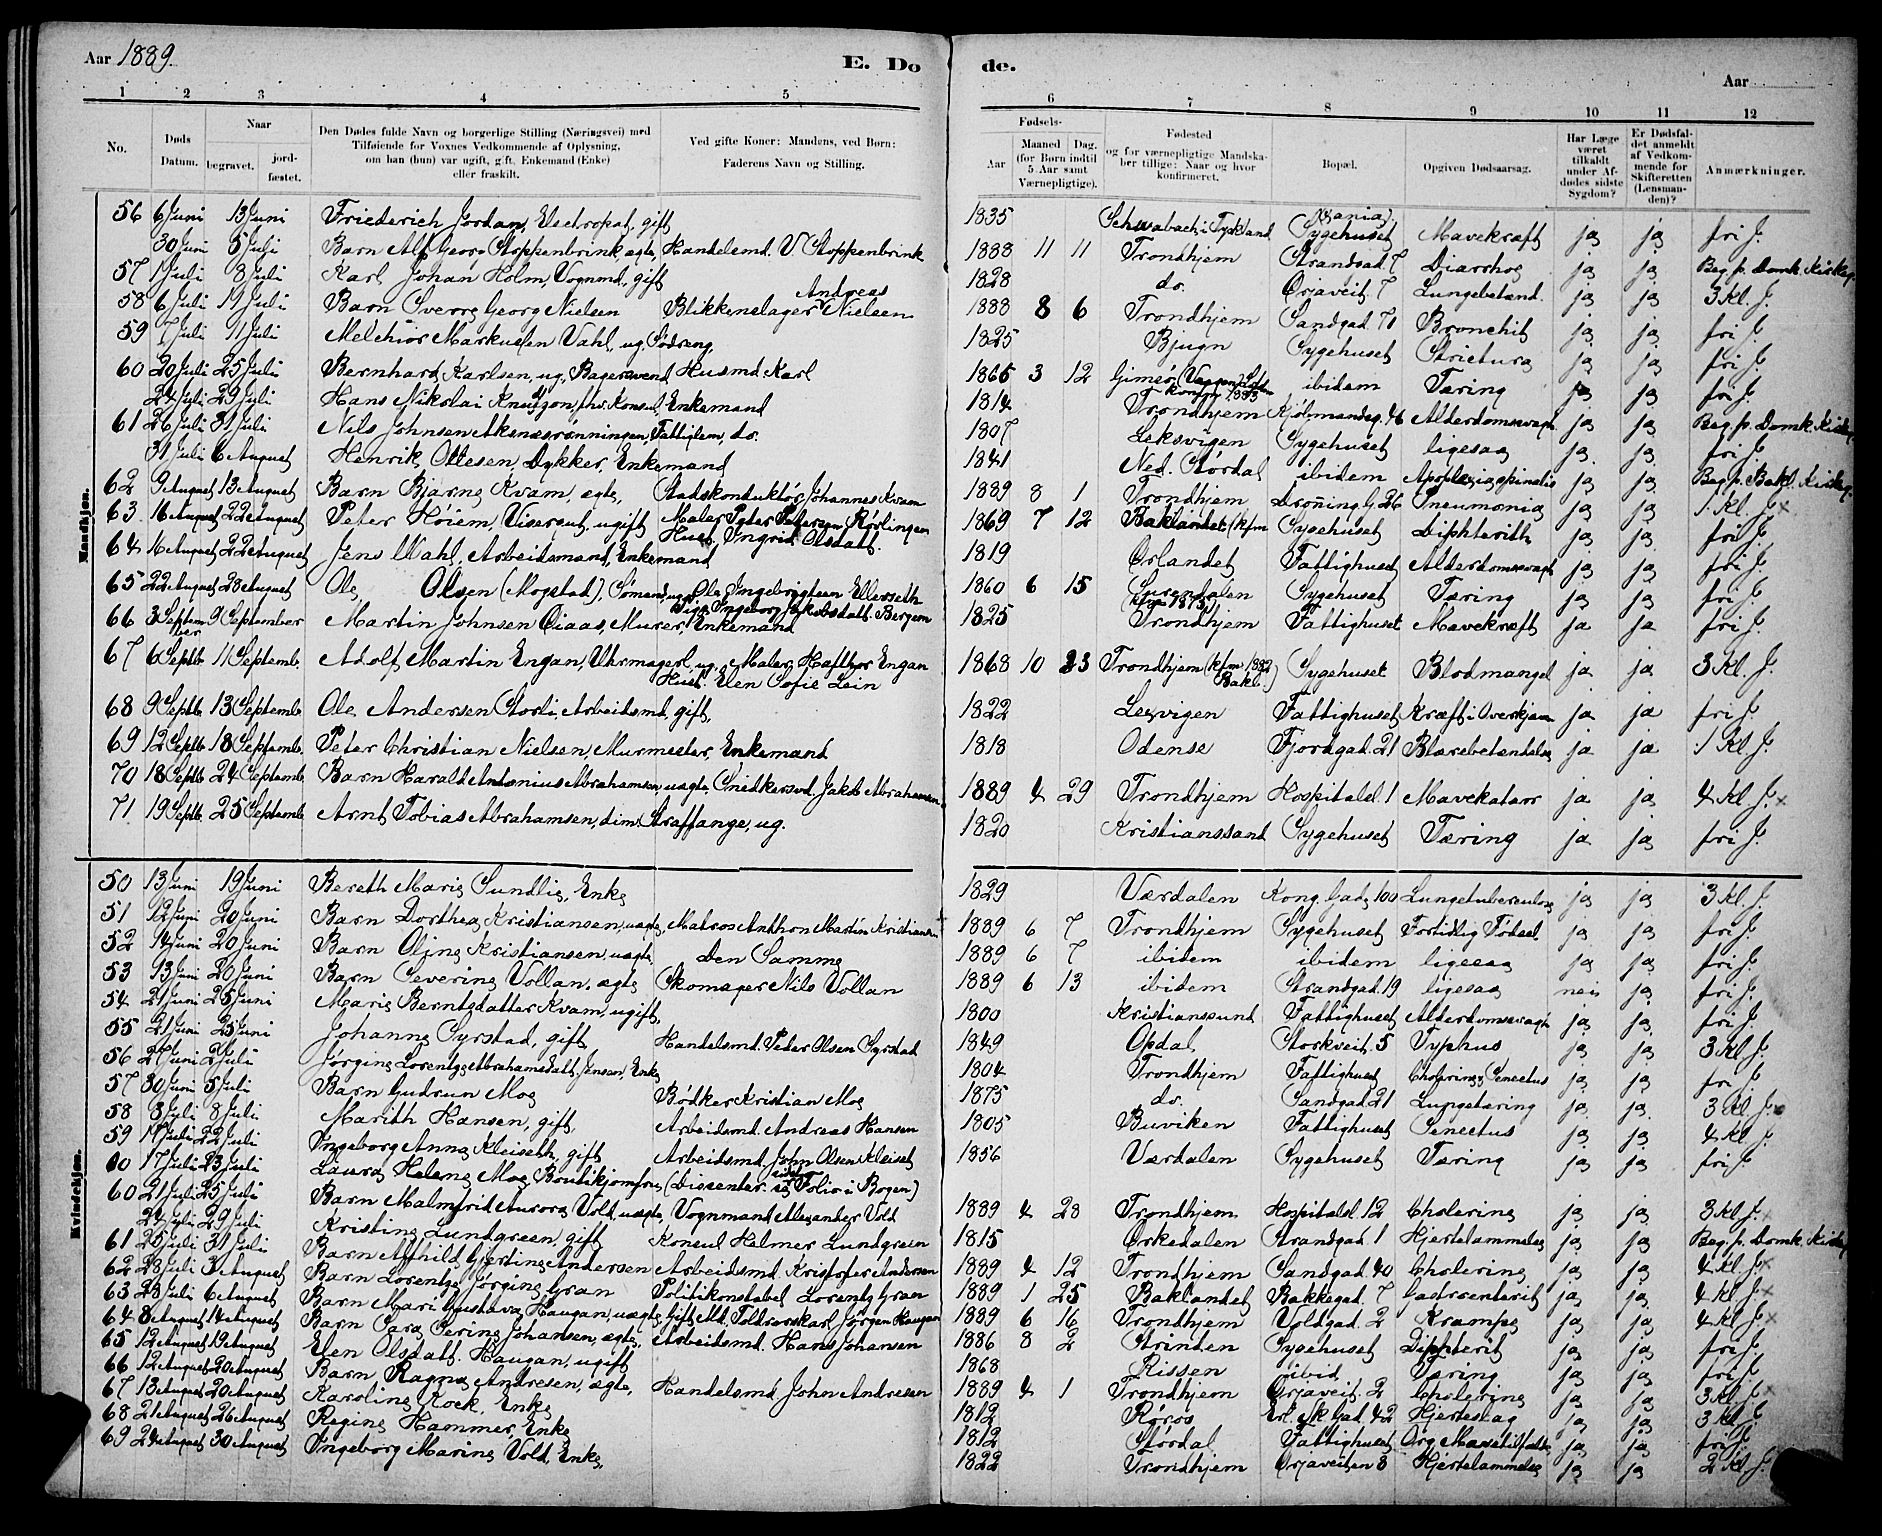 Aar 1889.
E. Døde.
Aar
1 2 3 4 5 6 7 8 9 10 11 12
No.
Døds Datum.
Naar
begravet.
jordfæstet.
Den Dødes fulde Navn og borgerlige Stilling (Næringsvei) med
Tilføiende for Voxnes Vedkommende af Oplysning,
om han (hun) var ugift, gift, Enkemand (Enke)
eller fraskilt.
Ved gifte Koner: Mandens, ved Børn:
Faderens Navn og Stilling.
Fødsels-
Aar
Maaned (for Børn indtil 5 Aar samt Værnepligtige).
Dag.
Fødested
og for værnepligtige Mandskaber tillige: Naar og hvor konfirmeret.
Bopæl.
Opgiven Dødsaarsag.
Har Læge været tilkaldt under Afdødes sidste Sygdom?
Er Dødsfaldet anmeldt af Vedkommende for Skifteretten (Lensmanden)?
Anmærkninger.
Mandkjøn.
56 6 Juni 13 Juni Friederich Jordan, Electropat, gift 1835 Schwabach i Tyskland Sygehuset Mavekræft ja ja fri J.
30 Juni 5 Juli Barn Alf Georg Stoppenbrink, ægte, Handelsmd. V. Stoppenbrink 1888 11 11 Trondhjem Strandgad. 7 Diarrhoe ja ja Beg. p. Domk. Kirkeg.
57 1 Juli 8 Juli Karl Johan Holm, Vognmd, gift 1828 do. Ørjaveit. 7 Lungebetænd. ja ja 3 Kl. J.
58 6 Juli 11 Juli Barn Sverre Georg Nielsen Blikkenslager Andreas Nielsen 1888 8 6 Trondhjem Sandgad. 71 Bronchit ja ja fri J.
59 7 Juli 11 Juli Melchior Markussen Vahl, ug. Sødreng, 1825 Bjugn Sygehuset Strictura ja ja fri J.
60 20 Juli 25 Juli Bernhard Karlsen, ug, Bagersvend Husmd. Karl 1865 3 12 Gimsø ibidem Tæring ja ja fri J.
24 Juli 29 Juli Hans Nikolai Knudtzon, fhv. Konsul, Enkemand 1814 Trondhjem Kjøbmandsg. 46 Alderdomssvagh. ja ja Beg. p. Domk. Kirkeg.
61 26 Juli 31 Juli Nils Johnsen Aksnæsrønningen, Fattiglem, do. 1807 Leksvigen Sygehuset ligesaa ja ja fri J.
31 Juli 6 August Henrik Ottesen, Dykker, Enkemand 1841 Ned. Størdal ibidem Apoplexia spinalis ja ja Beg. p. Bakl. Kirkeg.
62 9 August 13 August Barn Bjarne Kvam, ægte, Stadskonduktør Johannes Kvam 1889 8 1 Trondhjem Droning. G. 26 Pneumonia ja ja 1 Kl. J.
63 16 August 22 August Peter Høiem, Visergut, ugift Maler Peter Petersen Kørlingen Hust. Ingrid Olsdatt. 1869 7 12 Baklandet (kfm Sygehuset Diphterith ja ja fri J.
64 16 August 22 August Jens Wahl, Arbeidsmand, Enkemand 1819 Ørlandet Fattighuset Alderdomssvagh ja ja fri J.
65 22 August 28 August Ole Olsen (Mogstad), Sømand, ug. Ole Ingebrigtsen Ellersseth Pige Ingeborg Jakobsdatt. Bergem 1860 6 15 Surendalen (kfm 1875) Sygehuset Tæring ja ja fri J.
66 3 September 9 September Martin Johnsen Oiaas, Murer, Enkemand 1825 Trondhjem Fattighuset Mavekræft ja ja fri J.
67 6 Septb. 11 Septemb. Adolf Martin Engan, Uhrmagerl, ug. Maler Hafthor Engan Hust. Elen Sofie Lein 1868 10 23 Trondhjem (kfm 1882 Bakl.) Sygehuset Blodmangel ja ja 3 Kl. J.
68 9 Septb. 13 Septemb. Ole Andersen Storli, Arbeidsmd, gift, 1822 Lexvigen Fattighuset Kræft i Overkjæven ja ja fri J.
69 12 Septb. 18 Septemb. Peter Christian Nielsen, Murmester, Enkemand 1818 Odense Fjordgad. 21 Blærebetændelse ja ja 1 Kl. J.
70 18 Septb. 24 Septemb. Barn Harald Antonius Abrahamsen, uægte, Snedkersvd. Jakob Abrahamsen 1889 4 29 Trondhjem Hospitalsl. 1 Mavekatarr ja ja 4 Kl. J.
71 19 Septb. 25 Septemb. Arnt Tobias Abrahamsen, dim. Straffange, ug. 1820 Kristianssand Sygehuset Tæring ja ja fri J.
Kvindekjøn.
50 13 Juni 19 Juni Bereth Marie Sundlie, Enke 1829 Værdalen Kong. Gade 100 Lungetuberculose ja ja 3 Kl. J.
51 12 Juni 20 Juni Barn Dorthea Kristiansen, uægte, Matros Anthon Martin Kristiansen 1889 6 7 Trondhjem Sygehuset Fortidlig Fødsel ja ja fri J.
52 14 Juni 20 Juni Barn Oline Kristiansen, uægte, den Samme 1889 6 7 ibidem ibidem ligesaa ja ja fri J.
53 13 Juni 20 Juni Barn Severine Vollan, ægte Skomager Nils Vollan 1889 6 13 ibidem Strandgad. 19 ligesaa nei ja fri J.
54 21 Juni 25 Juni Marie Berntsdatter Kvam, ugift, 1800 Kristianssund Fattighuset Alderdomssvagh ja ja fri J.
55 21 Juni 25 Juni Johanne Syrstad, gift Handelsmd. Peder Olsen Syrstad 1849 Opdal Storkveit. 5 Typhus ja ja 3 Kl. J.
56 27 Juni 2 Juli Jørgine Lorentze Abrahamsdatt. Jensen, Enke 1804 Trondhjem Fattighuset Cholerine, Senectus ja ja fri J.
57 30 Juni 5 Juli Barn Gudrun Moe Bødker Kristian Moe 1875 do. Sandgad. 21 Lungetæring ja ja 3 Kl. J.
58 3 Juli 8 Juli Marith Hansen, gift, Arbeidsmd. Andreas Hansen 1805 Buviken Fattighuset Senectus ja ja 4 Kl. J.
59 17 Juli 22 Juli Ingeborg Anna Kleiseth, gift Arbeidsmd. John Olsen Kleiset 1856 Værdalen Sygehuset Tæring ja ja fri J.
60 17 Juli 23 Juli Laura Helene Moe, Boutikjomfru (Dissenter. Folio i Bogen)
60 21 Juli 25 Juli Barn Malmfrid Aurora Vold, uægte, Vognmand Alexander Vold 1889 4 28 Trondhjem Hospitalsl. 12 Cholerine ja ja 3 Kl. J.
24 Juli 29 Juli Kristine Lundgreen, gift Konsul Helmer Lundgreen 1815 Ørkedalen Strandgad. 1 Hjertelammelse ja ja Beg. p. Domk. Kirkeg.
61 25 Juli 31 Juli Barn Alfhild Gjertine Andersen Arbeidsmd. Kristofer Andersen 1889 4 12 Trondhjem Sandgad. 40 Cholerine ja ja 4 Kl. J.
62 28 Juli 3 August Barn Lorentze Jørgine Gran Politikonstabel Lorentz Gran 1889 1 25 Baklandet Bakkegad. 7 Gastroenterit ja ja 4 Kl. J.
63 23 Juli 6 August Barn Mari Gustava Haugan, uægte, Gift Md. Toldrorskarl Jørgen Haugan 1889 6 16 Trondhjem Voldgad. 2 Krampe ja ja 4 Kl. J.
64 8 August 14 August Barn Sara Serine Johansen, ægte, Arbeidsmd. Hans Johansen 1886 8 2 Strinden Sygehuset Diphterit ja ja fri J.
65 12 August 19 August Elen Olsdatt. Haugan, ugift 1868 Rissen ibid. Tæring ja ja fri J.
66 12 August 20 August Barn Ragna Andresen, ægte, Handelsmd. John Andresen 1889 4 1 Trondhjem Ørjaveit. 2 Cholerine ja ja 3 Kl. J.
67 13 August 20 August Karoline Kock, Enke 1812 Røros Erl. Sk. Gad. 42 Hjerteslag ja ja 3 Kl. J.
68 21 August 26 August Regine Hammer, Enke 1812 Størdal Fattighuset ja ja fri J.
69 24 August 30 August Ingeborg Marine Vold, Enke, 1822 Trondhjem Ørjaveiten 8 Hjertelammelse ja ja 2 Kl. J.